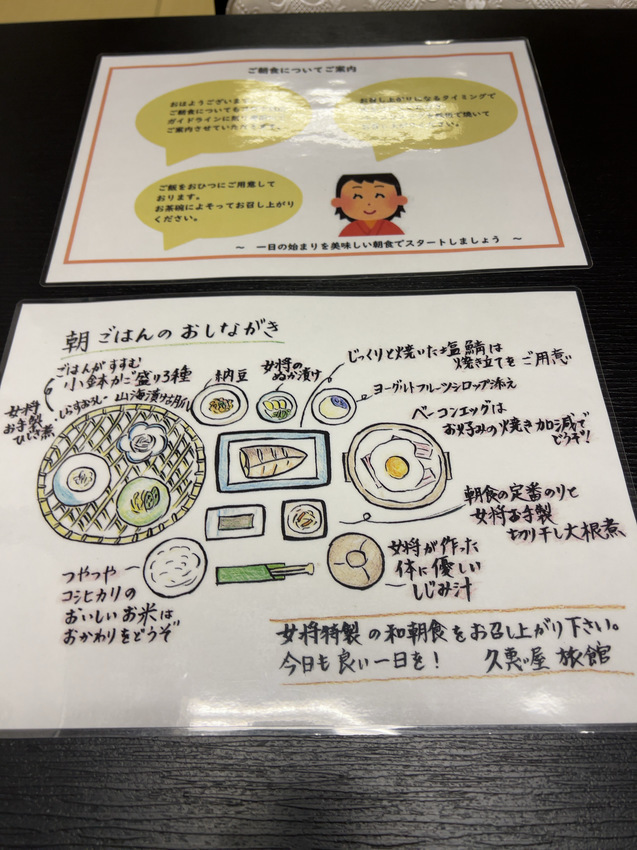 ご朝食についてご案内
おはようございます
ご朝食についても
ガイドラインに
ご案内させていただきます。
お召し上がりになるタイミングで
焼いて
ご飯をおひつにご用意して
おります。
お茶碗によそってお召し上がり
ください。
～ 一日の始まりを美味しい朝食でスタートしましょう ～
朝ごはんのおしながき
ごはんがすすむ
小鉢かご盛り3種
しらすおろし 山海漬け
女将
お手製
ひじき煮
納豆
女将の
ぬか漬け
じっくりと焼いた塩鯖は
焼き立てをご用意
ヨーグルトフルーツシロップ添え
ベーコンエッグは
お好みの焼き加減で
どうぞ!
朝食の定番のりと
女将お手製
切り干し大根煮
つやつや
コシヒカリの
おいしいお米は
おかわりをどうぞ
女将が作った
体に優しい
しじみ汁
女将特製の和朝食をお召し上がり下さい。
今日も良い一日を! 久恵屋旅館